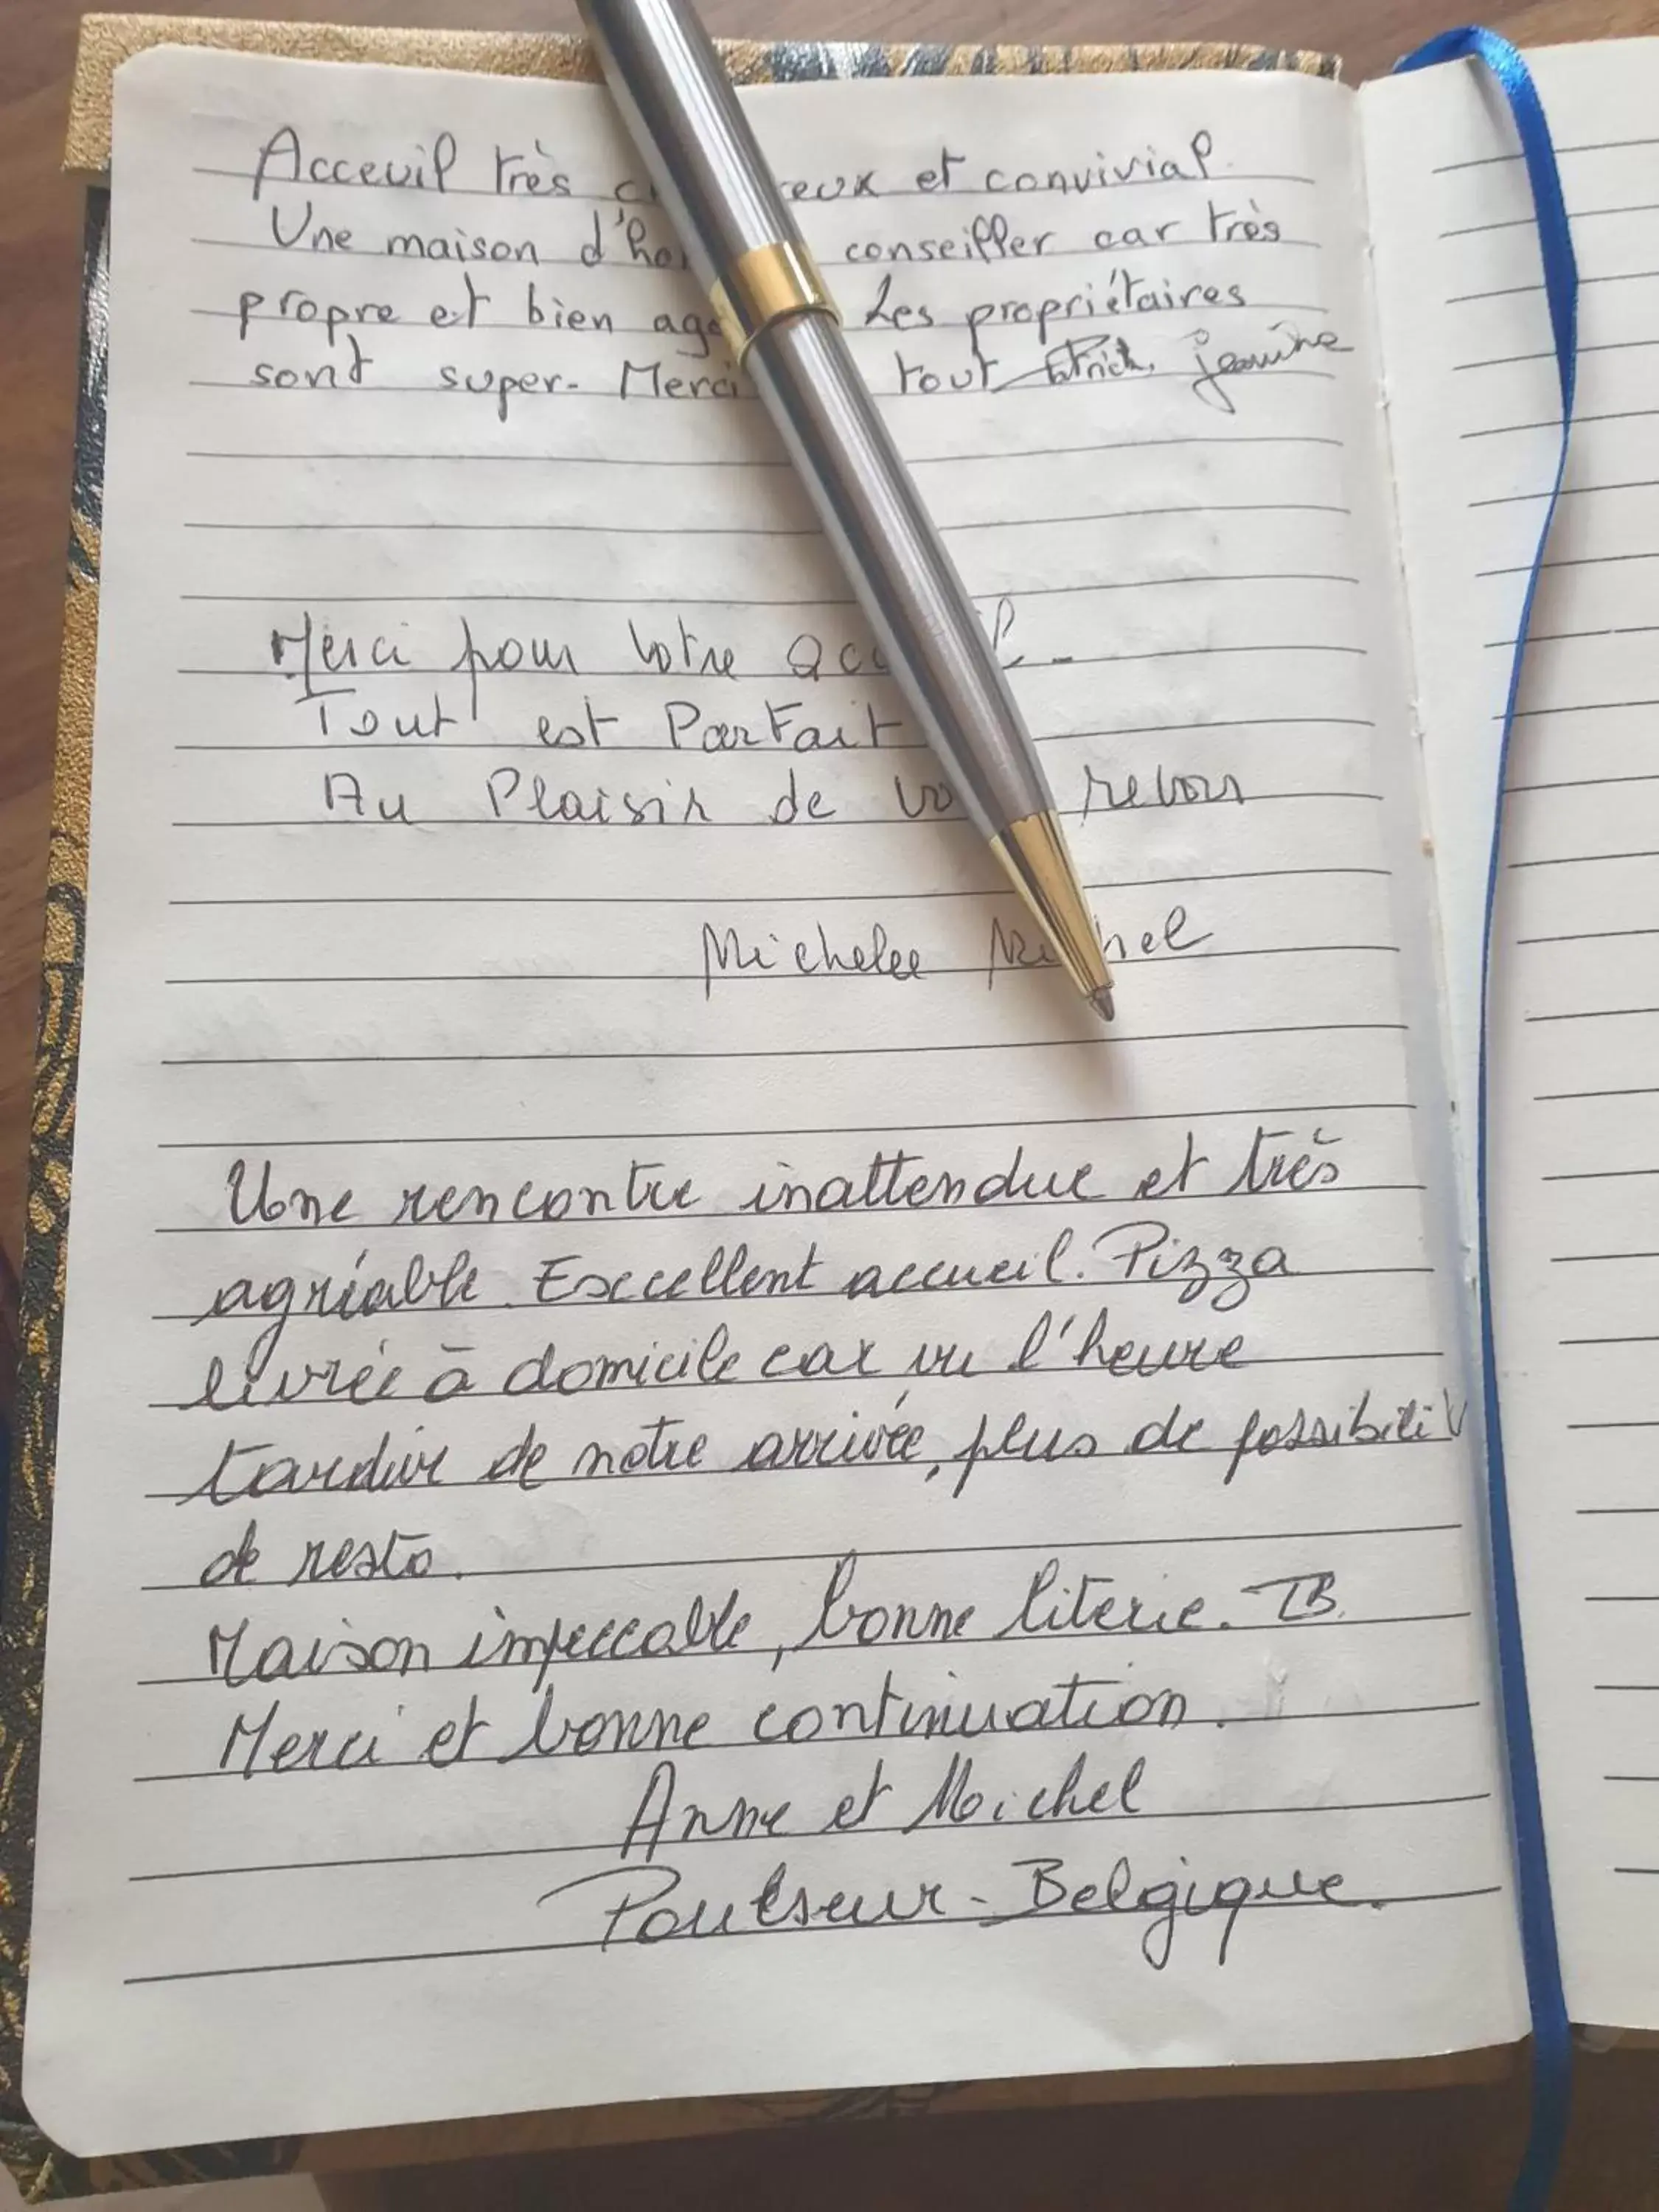 Acceuil très eux et convivial
Une maison d'ho conseiller car très
propre et bien age Les propriétaires
sont super. Merci tout Patrick jeanine
Merci pour votre acc il
Tout est Parfait
Au Plaisir de vo revoir
Michelee Mi hel
Une rencontre inattendue et très
agréable. Excellent accueil. Pizza
livrée à domicile car vu l'heure
tardive de notre arrivée, plus de possibilit
de resto.
Maison impeccable, bonne literie. TB.
Merci et bonne continuation.
Anne et Michel
Poulseur - Belgique.